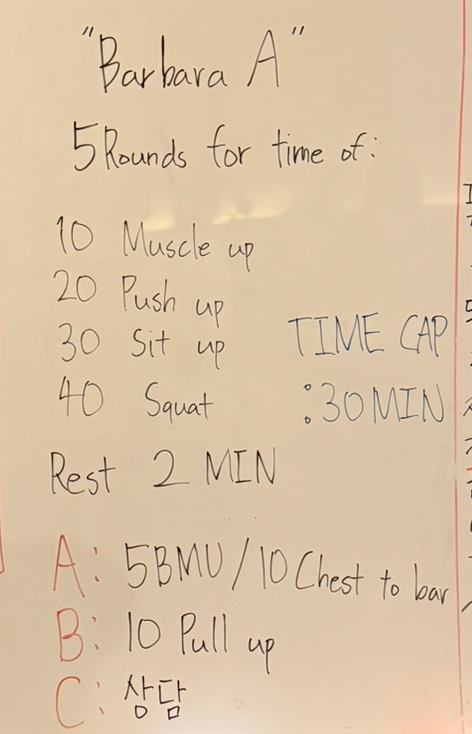 "Barbara A"
5 Rounds for time of:
10 Muscle up
20 Push up
30 Sit up
40 Squat
TIME CAP
: 30 MIN
Rest 2 MIN
A: 5BMU / 10 Chest to bar
B: 10 Pull up
C: 상담